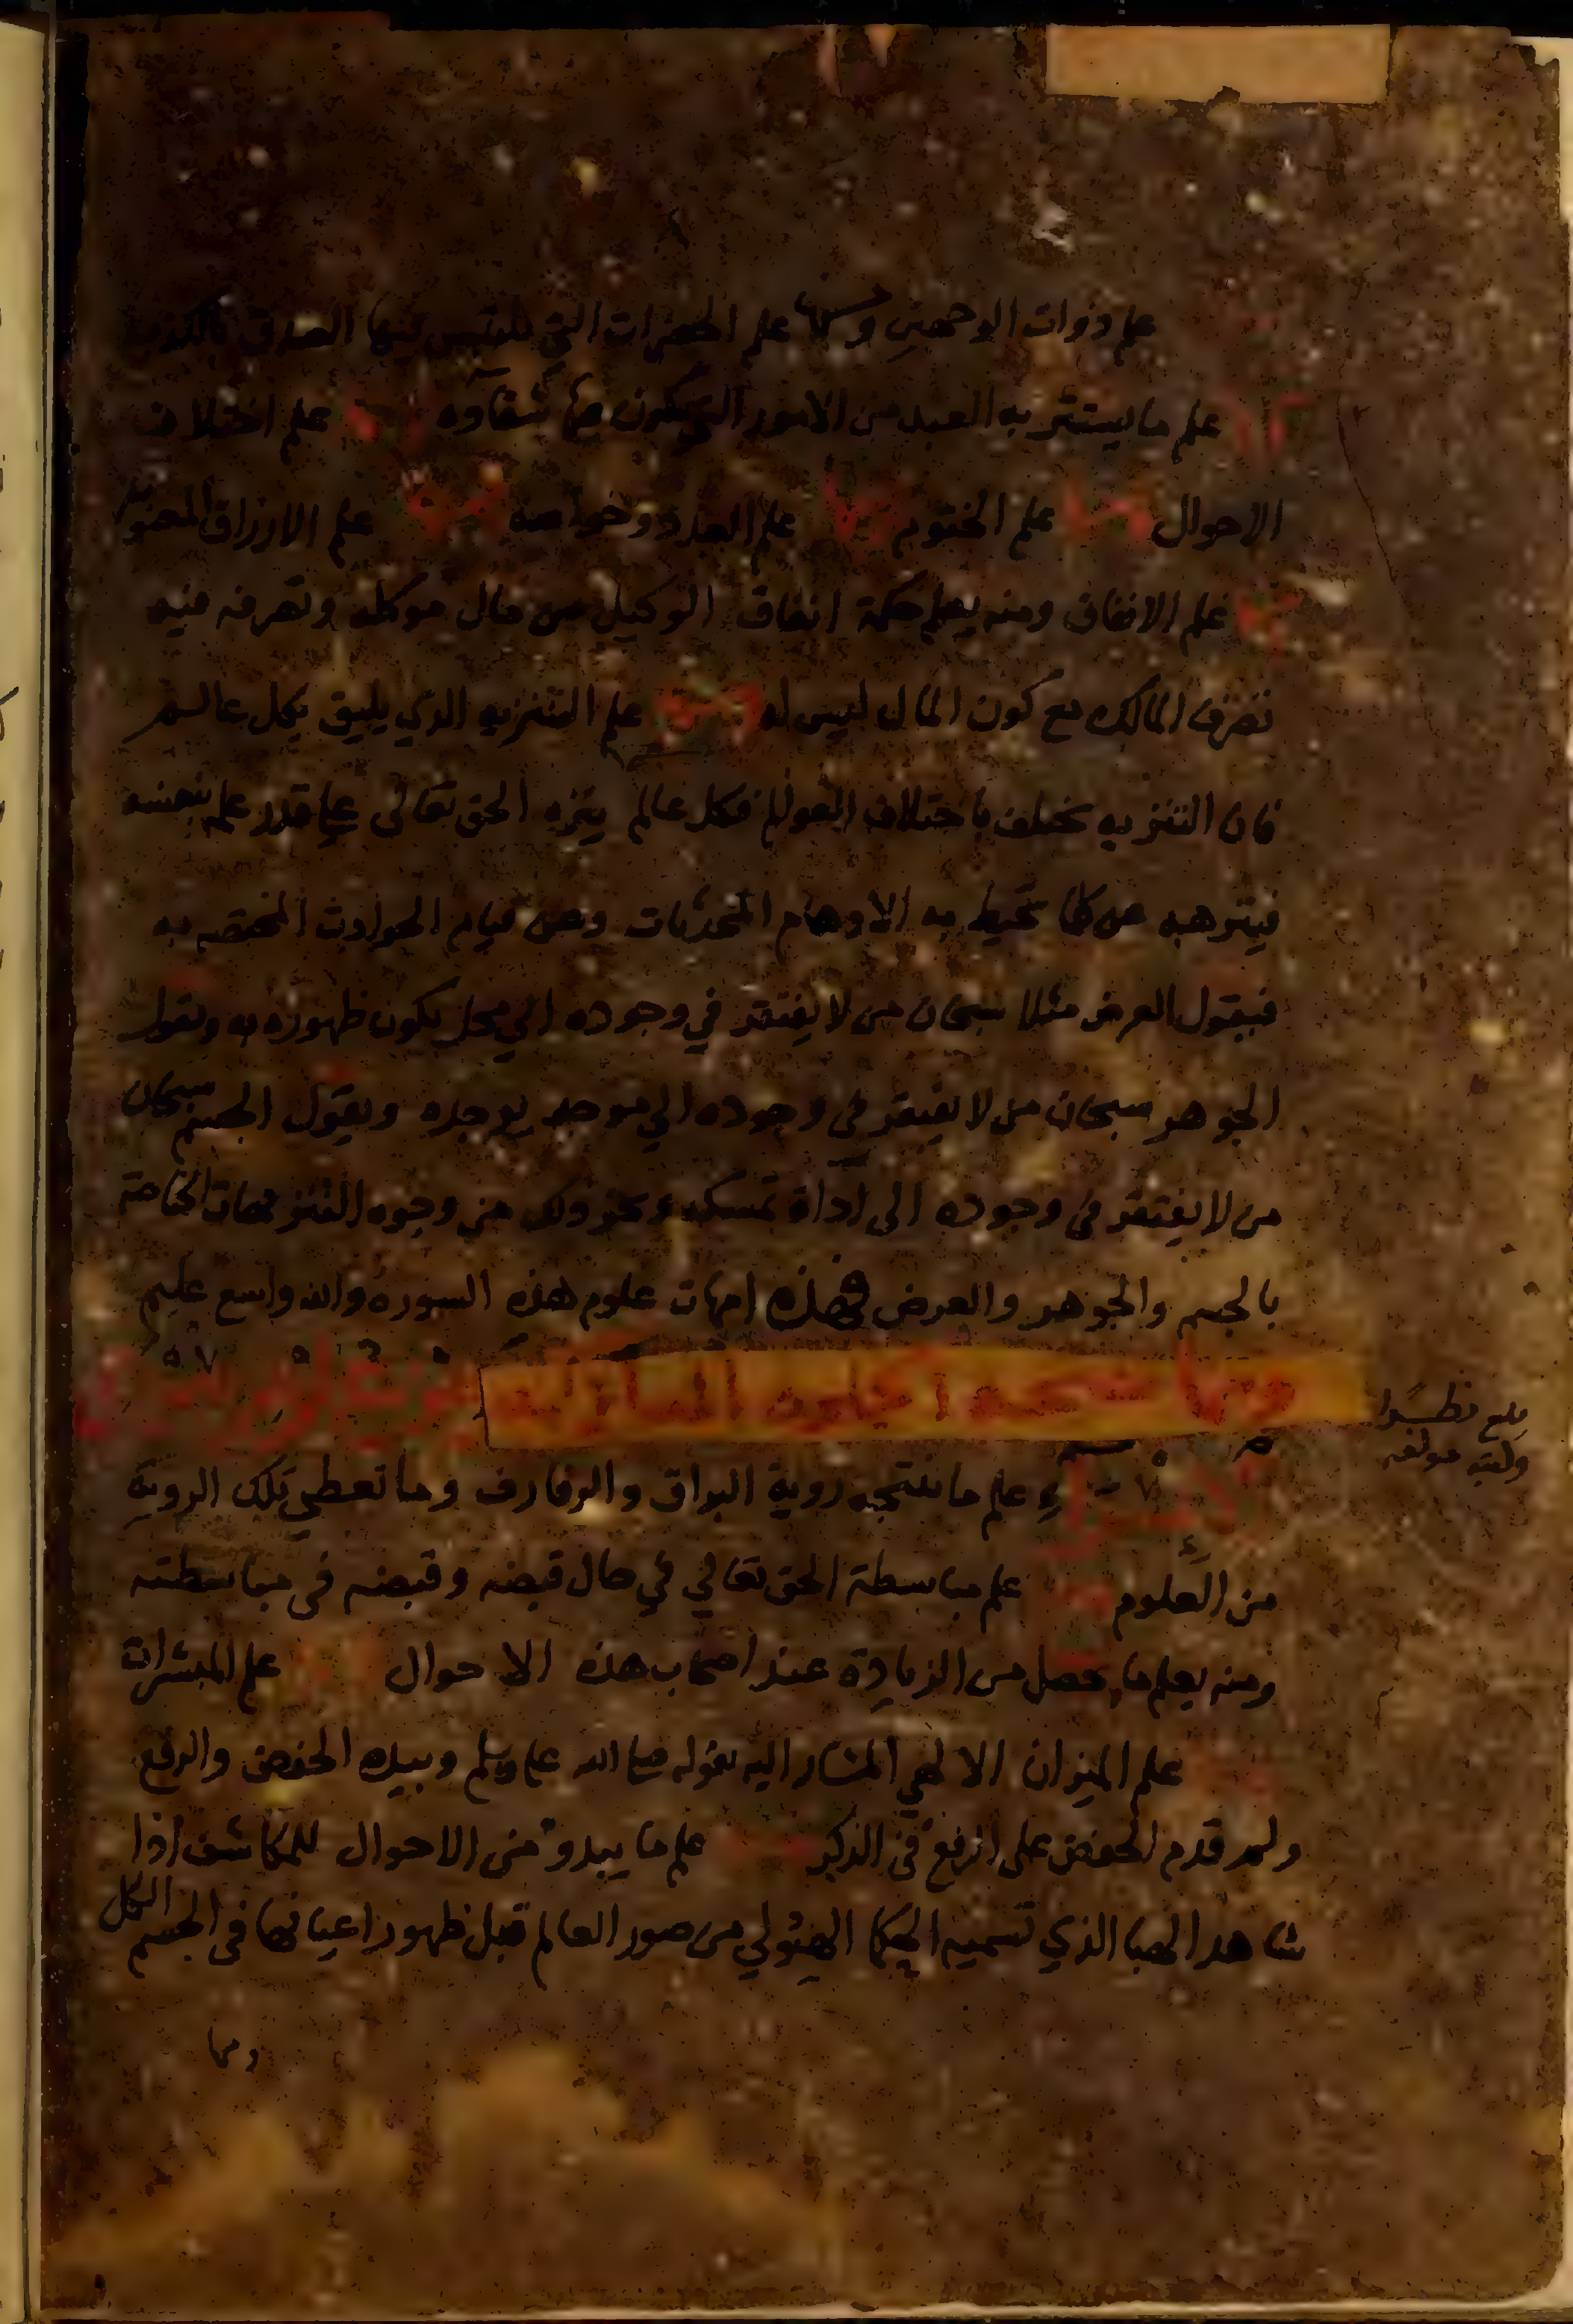 علم ذوات الوجهين ومنها علم الحضرات التي يلتبس فيها الصدق بالكذب
علم ما يستتر به العبد من الامور التي يكون فيها شقاوه علم اختلاف
الاحوال ومنها علم الختوم ومنها علم العدد وخواصه ومنها علم الارزاق المعنويه
علم الانفاق ومنه يعلم حكمة انفاق الوكيل من مال موكله وتصرفه فيه
تصرف المالك مع كون المال ليس له علم التنزيه الذي يليق بكل عالم
فان التنزيه يختلف باختلاف العوالم فكل عالم ينزه الحق تعالى على قدر علمه بنفسه
فينزهه عن كلما تحيط به الاوهام المحدثات وعن قيام الحوادث المختصه به
فيقول العرض مثلا سبحان من لا يفتقر في وجوده الي محل يكون ظهوره به ويقول
الجوهر سبحان من لا يفتقر في وجوده الي موجد يوجده ويقول الجسم سبحان
من لا يفتقر في وجوده الى اداة تمسكه ونحو ذلك من وجوه التنزيهات الخاصة
بالجسم والجوهر والعرض فهذه امهات علوم هذه السوره والله واسع عليم
بلغ نظرا
وكتبه مولفه
علم ما ينتجه روية البراق والرفارف وما تعطي تلك الروية
من العلوم علم مباسطة الحق تعالي في حال قبضه وقبضه في مباسطته
ومنه يعلم ما حصل من الزيادة عند اصحاب هذه الاحوال علم المبشرات
علم الميزان الالهي المشار اليه بقوله صلى الله عليه وسلم وبيده الخفض والرفع
ولم قدم الخفض على الرفع في الذكر علم ما يبدو من الاحوال للمكاشف اذا
شاهد الهبا الذي تسميه الحكما الهيولي من صور العالم قبل ظهور اعيانها في الجسم الكل
ومنها